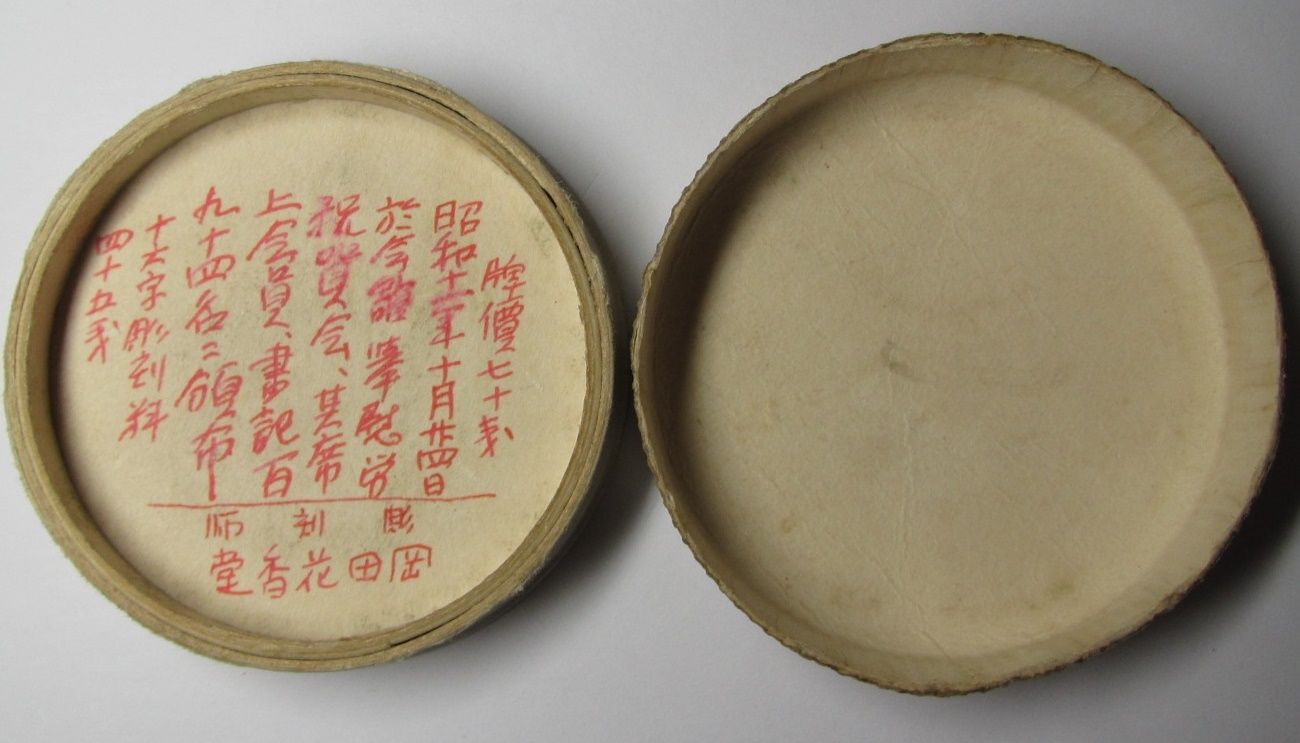 價七十戔
昭和十二年十月廿四日
於会館 慰労
祝賀会、其席
上会員、書記百
九十四名ニ頒布
十六字彫刻料
四十五戔
彫刻師
岡田花香堂